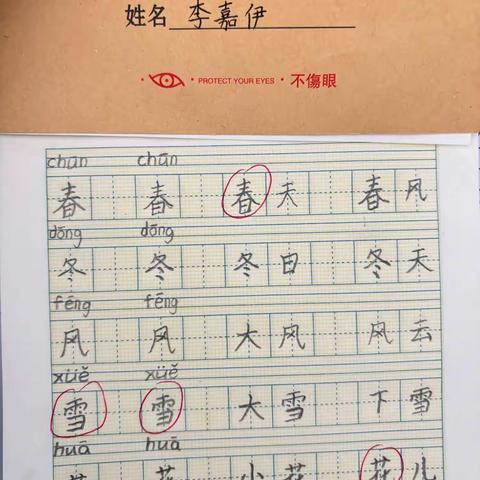 姓名 李嘉伊
PROTECT YOUR EYES · 不傷眼
chūn chūn
春 春 春天 春风
dōng dōng
冬 冬 冬日 冬天
fēng fēng
风 风 大风 风云
xüě xüě
雪 雪 大雪 下雪
huā huā
花 花 小花 花儿